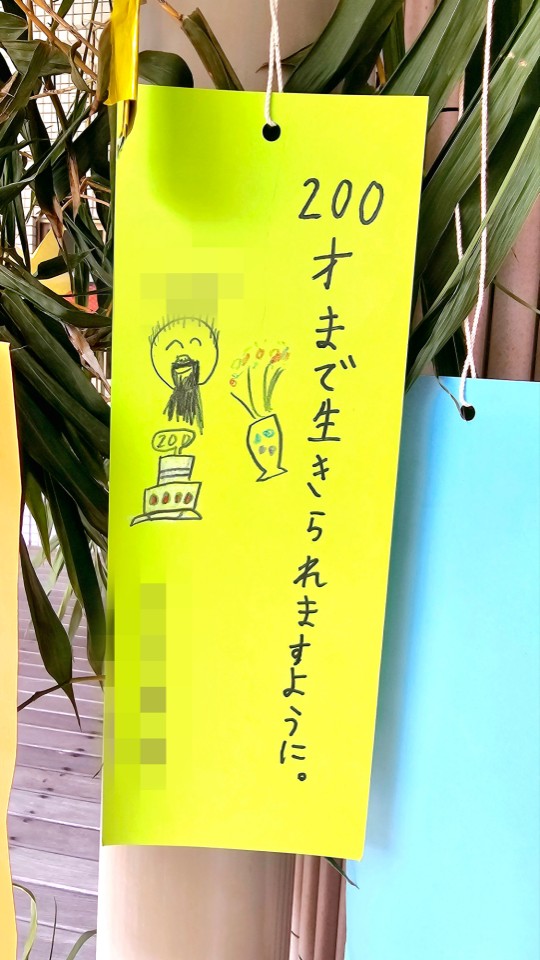 200才まで生きられますように。
200